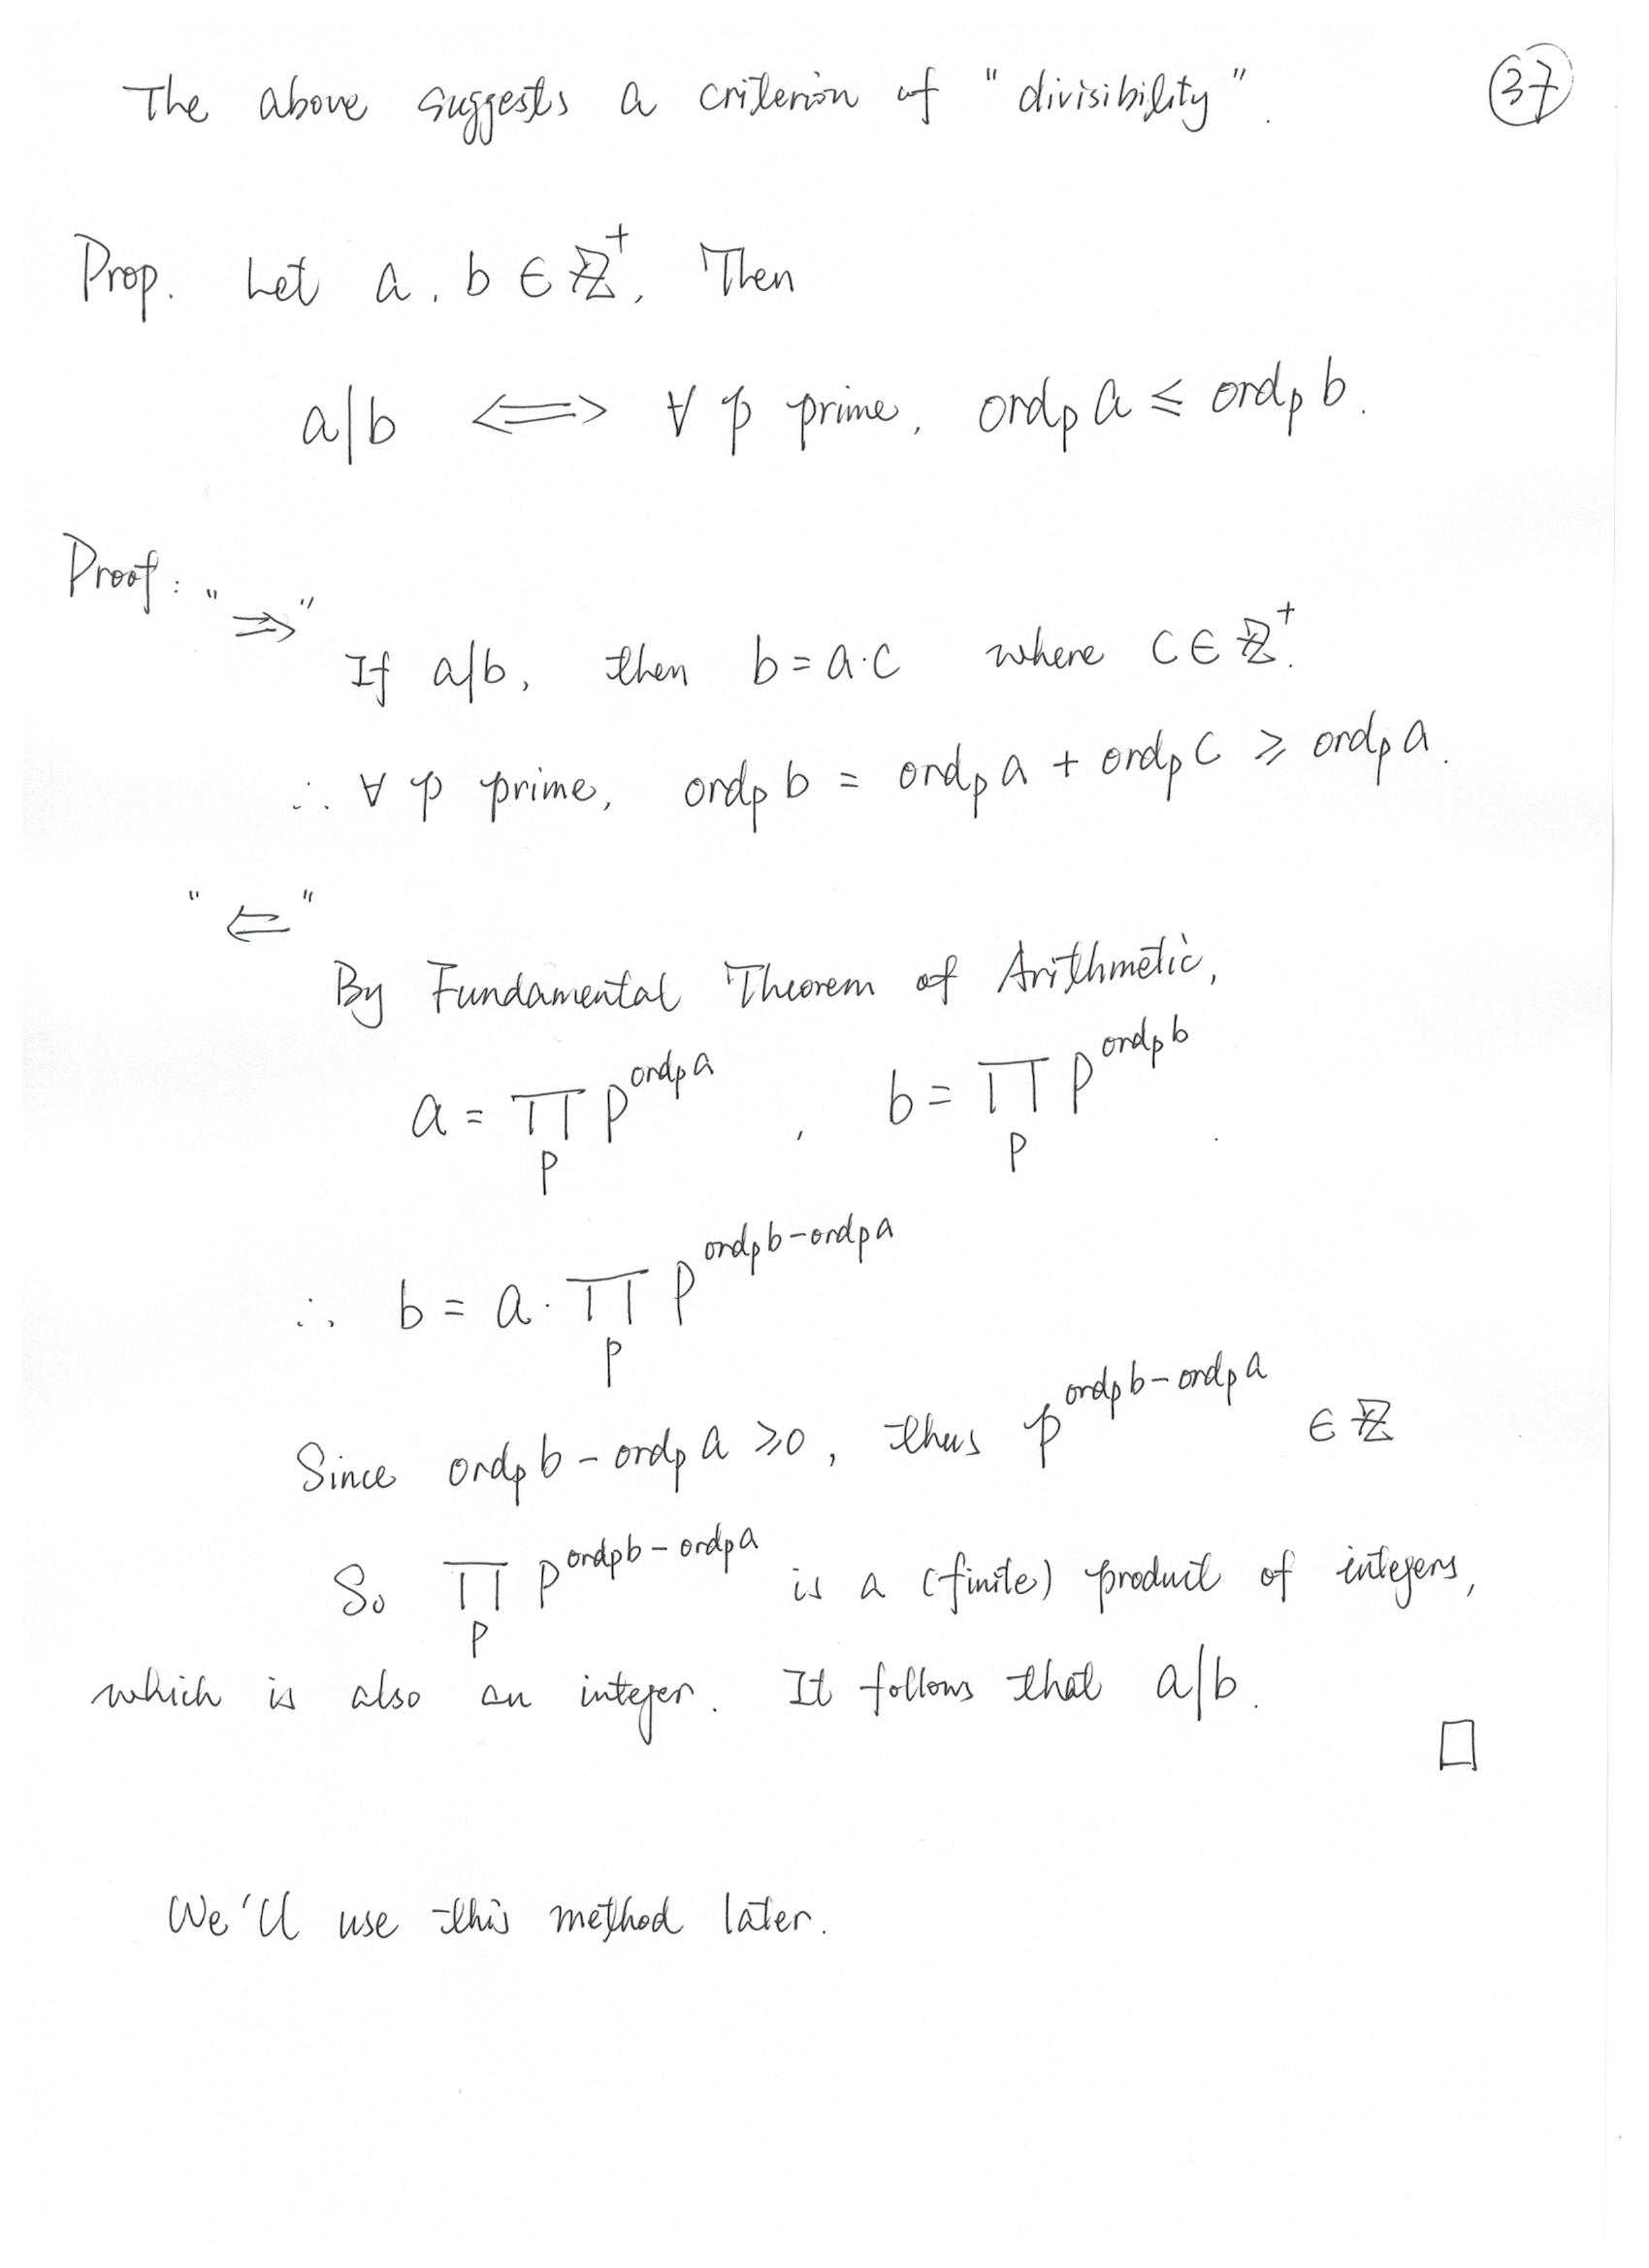 The above suggests a criterion of "divisibility". 37
Prop. Let a, b ∈ ℤ⁺. Then
a|b ⟺ ∀ p prime, ord_p a ≤ ord_p b.
Proof: "⇒"
If a|b, then b = a·c where c ∈ ℤ⁺.
∴ ∀ p prime, ord_p b = ord_p a + ord_p c ≥ ord_p a.
"⇐"
By Fundamental Theorem of Arithmetic,
a = ∏_p p^{ord_p a}, b = ∏_p p^{ord_p b}.
∴ b = a·∏_p p^{ord_p b - ord_p a}
Since ord_p b - ord_p a ≥ 0, thus p^{ord_p b - ord_p a} ∈ ℤ
So ∏_p p^{ord_p b - ord_p a} is a (finite) product of integers,
which is also an integer. It follows that a|b.
□
We'll use this method later.